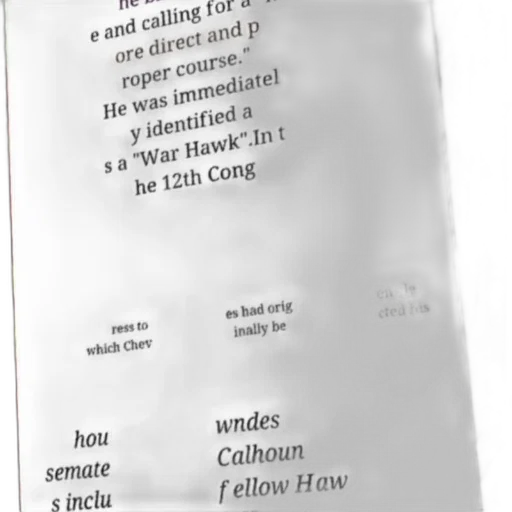 e and calling for a
ore direct and p
roper course."
He was immediatel
y identified a
s a "War Hawk".In t
he 12th Cong
ress to
which Chev
es had orig
inally be
cted his
hou
semate
s inclu
wndes
Calhoun
fellow Haw